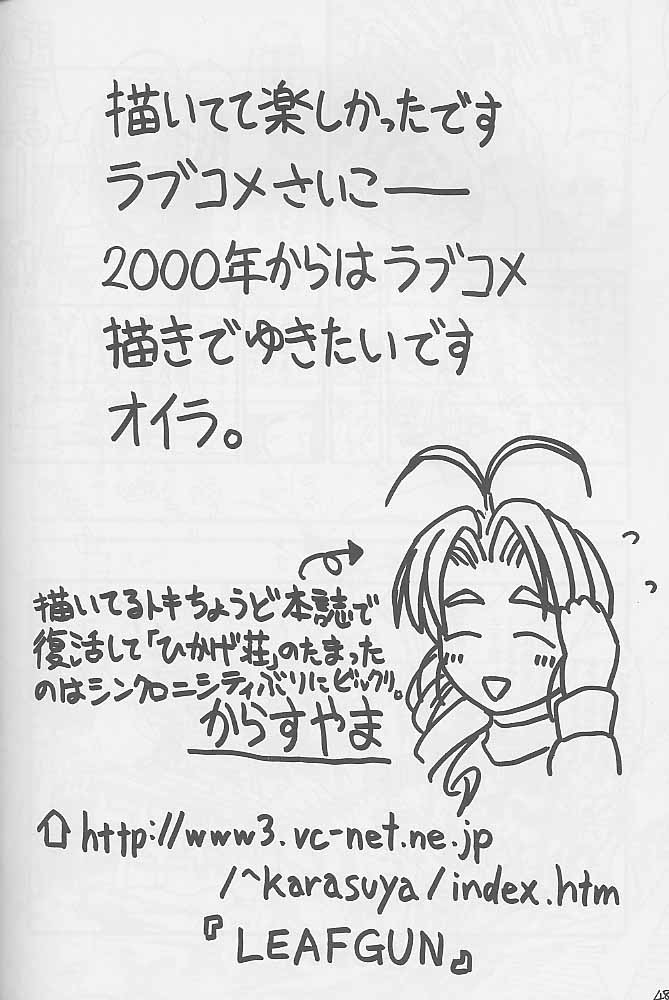 描いてて楽しかったです
ラブコメさいこー
2000年からはラブコメ
描きでゆきたいです
オイラ。
描いてるトキちょうど本誌で
復活して「ひかげ荘」のたまった
のはシンクロニシティぶりにビックリ。
からすやま
http://www3.vc-net.ne.jp
/~karasuya/index.htm
『LEAFGUN』